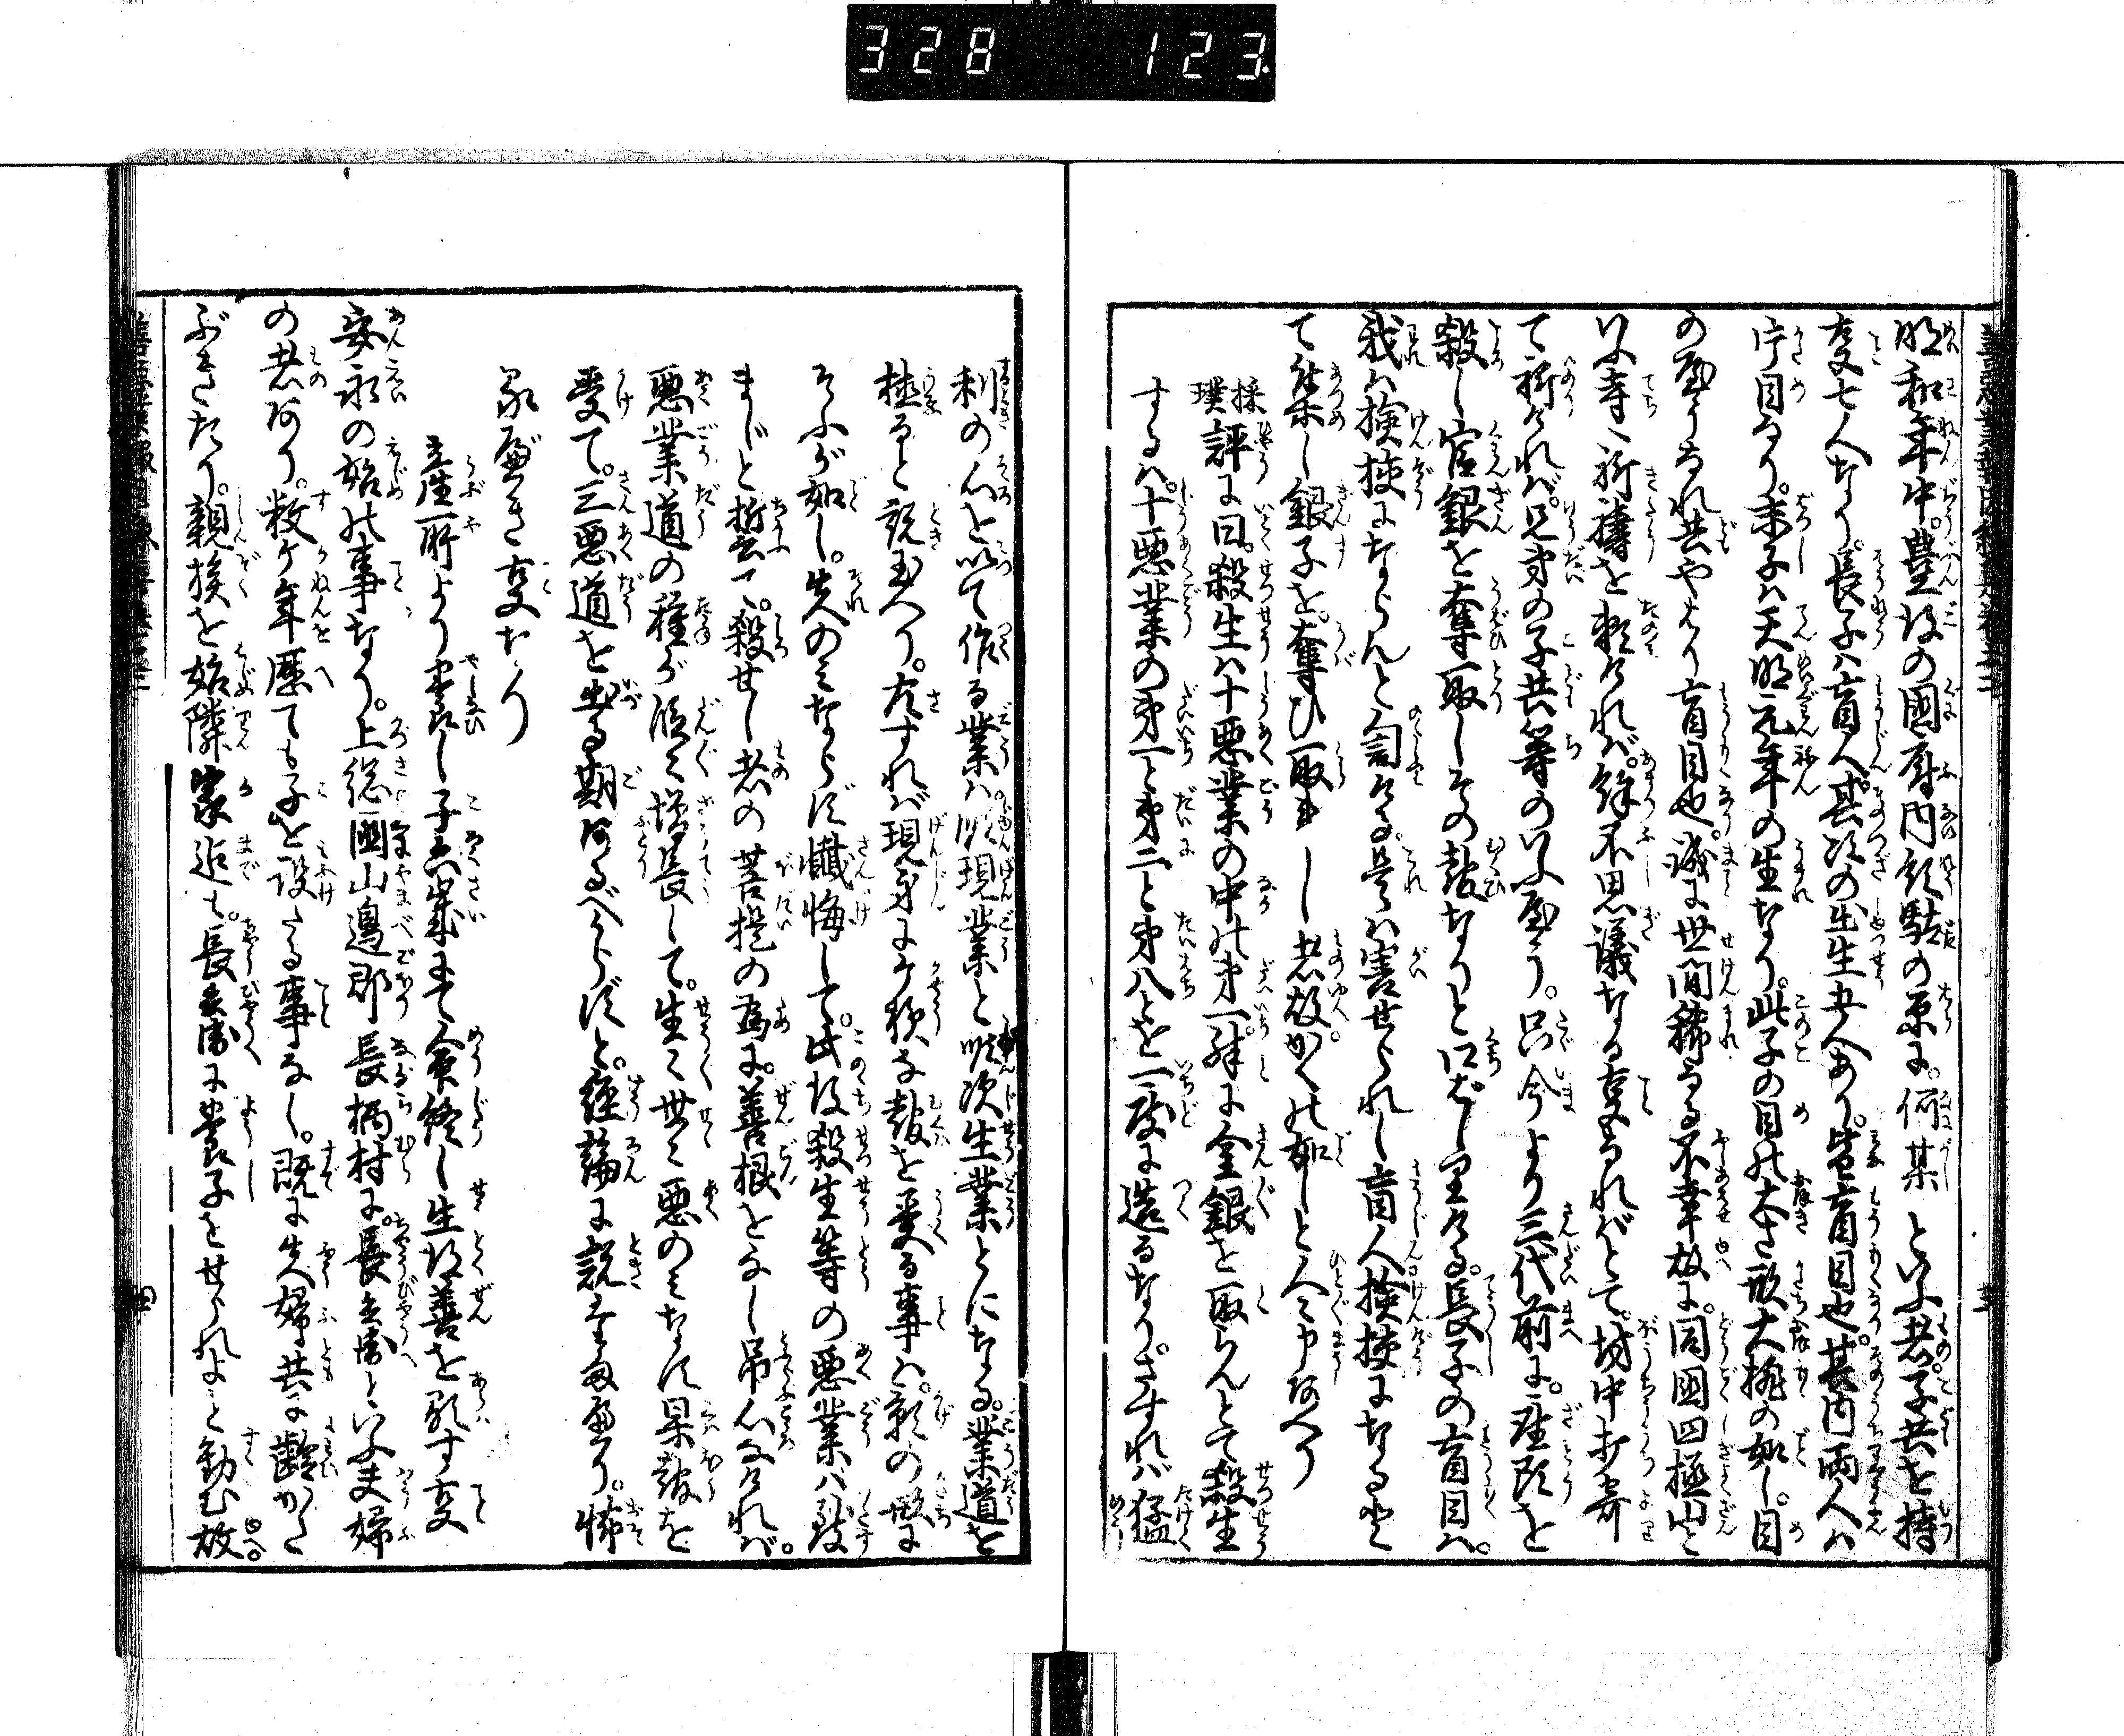 328 123
明和年中。豊後の国府内領駄の原に。何某といふ者。子共を持
事七人なり。長子ハ盲人。其次の出生五人あり。皆盲目也。其内両人ハ
片目なり。末子ハ天明元年の生なり。此子の目の大さ歌大桃の如し。目
の廻りなれ共やはり盲目也。誠に世間稀なる不幸故に。同国四極山と
いふ寺に祈祷を頼けれバ。余不思議なる事なれバとて。坊中打寄
て祈けれバ。兄弟の子共等のいふ。只今より三代前に。座頭を
殺し官銀を奪取しその報なりと口ばしりける。長子の盲目ハ。
我ハ検校にならんと訇ける。是ハ害せられし盲人検校になるとて
て集し銀子を。奪ひ取れし者故。かくの如しと人々申あへり
採璞評に曰。殺生ハ十悪業の中の第一殊に金銀を取らんとて殺生
するハ。十悪業の第一と第二と第八とを一度に造るなり。さすれバ猛
利の心を以て作る業ハ。順現業と順次生業とになる。業道を
極ると説玉へり。左すれバ現身にか様な報を受る事ハ。影の形に
そふが如し。夫のミならず懺悔して。此後殺生等の悪業ハ致
まじと誓て。殺せし者の菩提の為に。善根をなし弔心なけれバ。
悪業道の種が段々増長して。生々世々悪のミなす果報を
受て。三悪道を出る期あるべからずと。経論に説玉ふ也。怖
るべき事なり
産所より貰し子六歳にて命終し生後善を顕す事
安永の始の事なり。上総国山辺郡長柄村に。長兵衛といふ夫婦
の者あり。数ケ年歴ても子を設たる事なし。既に夫婦共に齢かた
ぶきたり。親族を始隣家迄も。長兵衛に養子をせられよと勧む故。